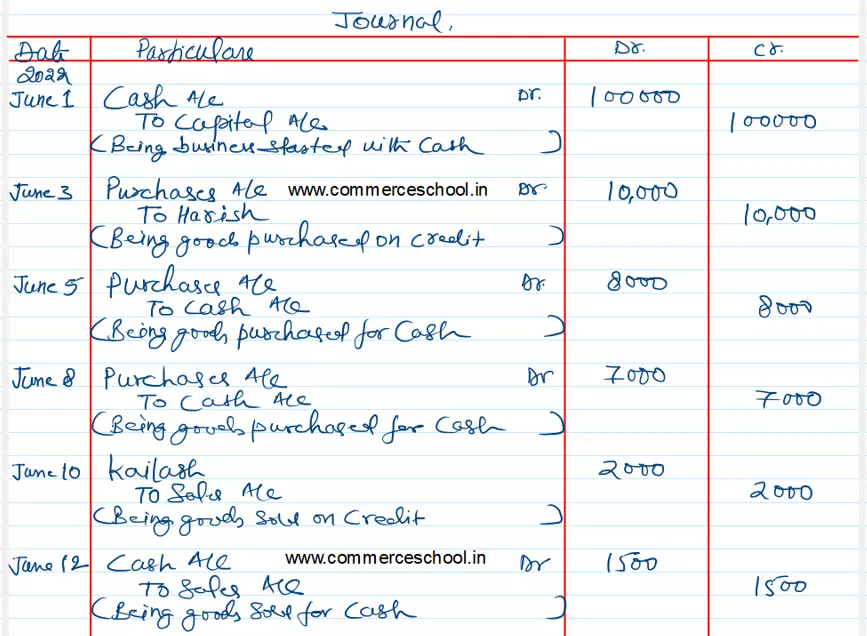 Journal.
Date Particulars Dr. Cr.
2022
June 1 Cash A/c Dr. 100000
To Capital A/c 100000
(Being business started with Cash )
June 3 Purchases A/c www.commerceschool.in Dr 10,000
To Harish 10,000
(Being goods purchased on Credit )
June 5 Purchases A/c Dr. 8000
To Cash A/c 8000
(Being goods purchased for Cash )
June 8 Purchases A/c Dr 7000
To Cash A/c 7000
(Being goods purchased for Cash )
June 10 Kailash 2000
To Sales A/c 2000
(Being goods Sold on Credit )
June 12 Cash A/c www.commerceschool.in Dr 1500
To Sales A/c 1500
(Being goods Sold for Cash )